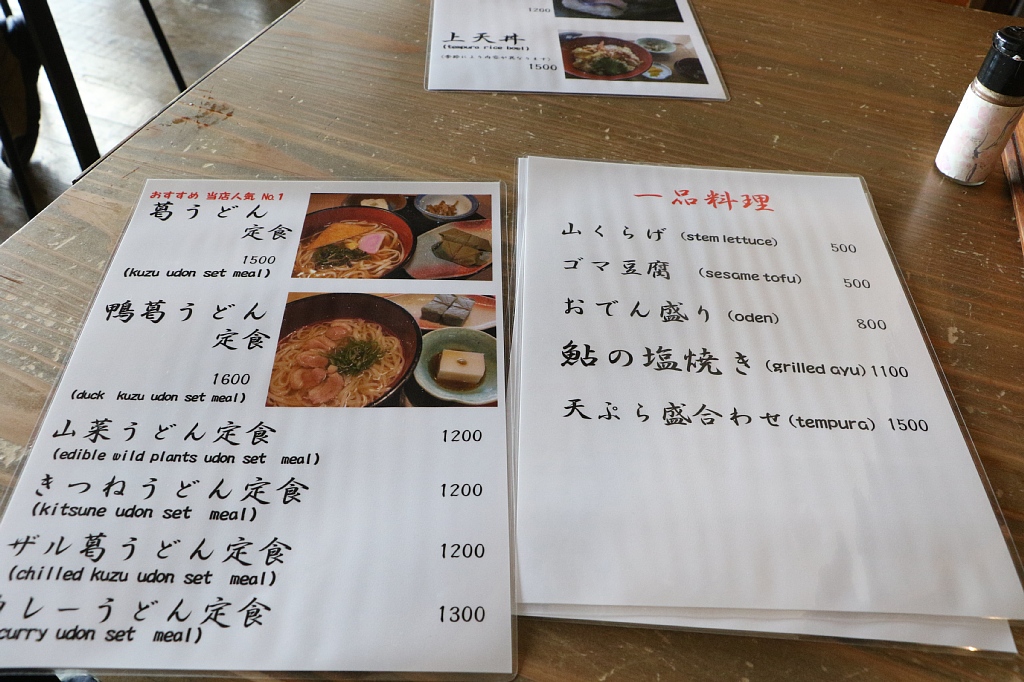 1200
上天丼
(tempura rice bowl)
(季節により内容が異なります)
1500
おすすめ 当店人気 No.1
葛うどん
定食
1500
(kuzu udon set meal)
鴨葛うどん
定食
1600
(duck kuzu udon set meal)
山菜うどん定食 1200
(edible wild plants udon set meal)
きつねうどん定食 1200
(kitsune udon set meal)
ザル葛うどん定食 1200
(chilled kuzu udon set meal)
カレーうどん定食 1300
curry udon set meal)
一品料理
山くらげ (stem lettuce) 500
ゴマ豆腐 (sesame tofu) 500
おでん盛り (oden) 800
鮎の塩焼き (grilled ayu) 1100
天ぷら盛合わせ (tempura) 1500